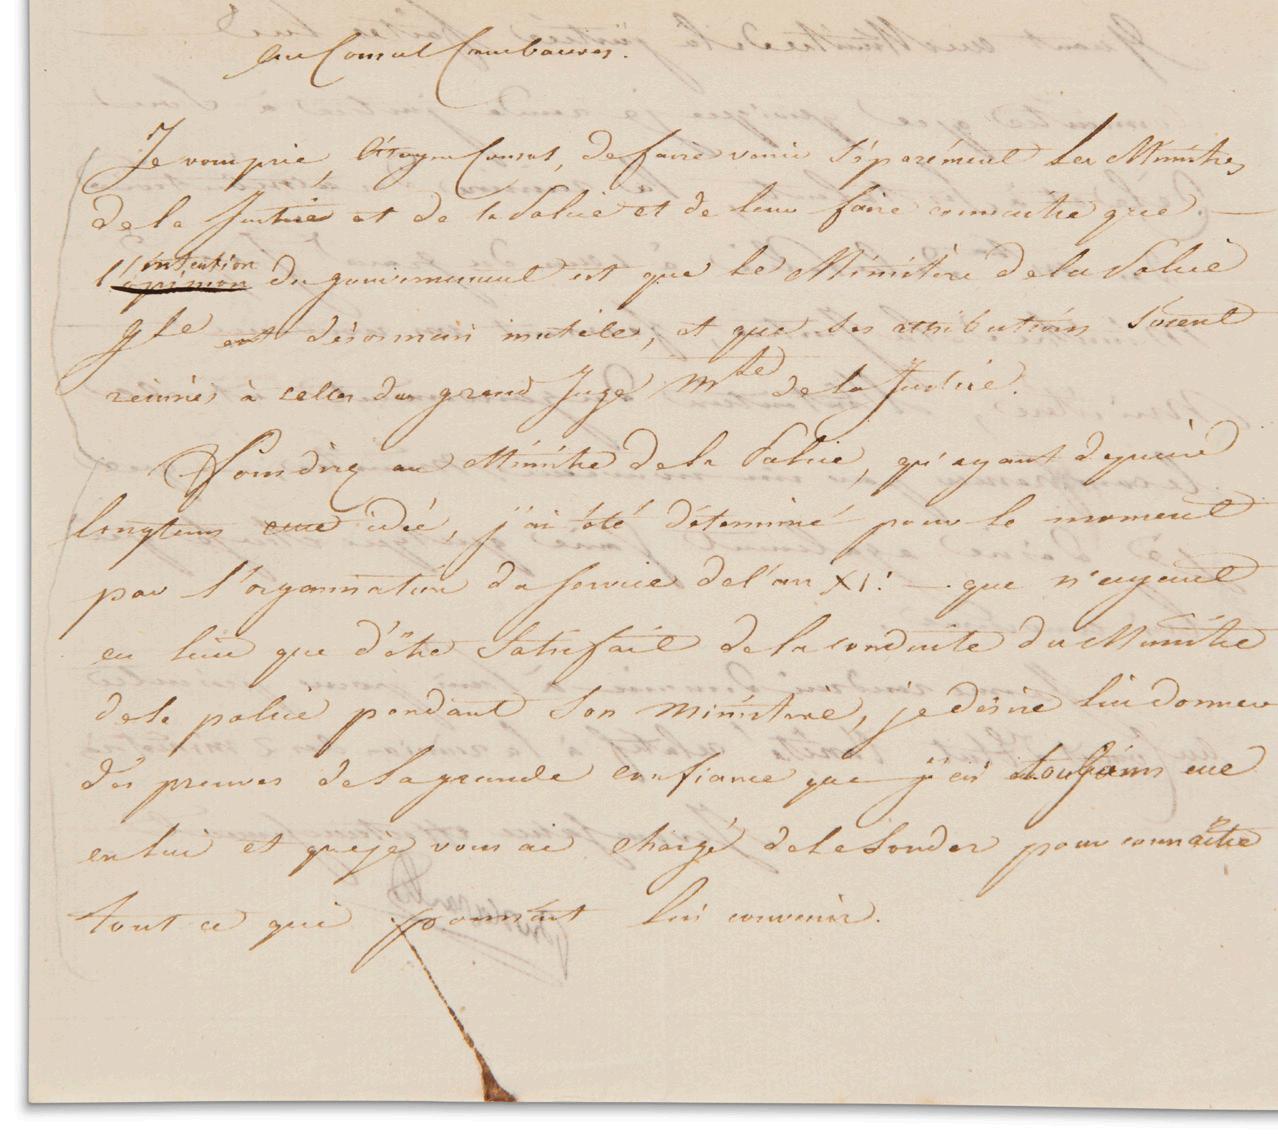 Au Consul Cambaceres.
Je vous prie, Citoyen Consul, de faire venir séparément les Ministres
de la Justice et de la Police et de leur faire connaitre que
l'intention opinion du gouvernement est que le Ministère de la Police
gle est désormais inutile, et que ses attributions soient
réunies à celles du grand Juge Mtre de la Justice.
Vous direz au Ministre de la Police, qu'ayant depuis
longtems cette idée, j'ai été déterminé pour le moment
par l'organisation du service de l'an XI. que n'ayant
eu lieu que d'être satisfait de la conduite du Ministre
de la police pendant son ministère, je désire lui donner
des preuves de la grande confiance que j'ai toujours eue
en lui et que je vous ai chargé de le sonder pour connaitre
tout ce qui pourrait lui convenir.